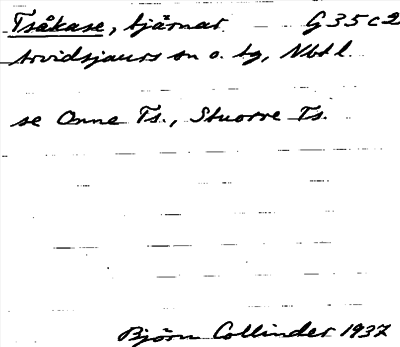 Tsåkase, tjärnar. G 35 c 2
Arvidsjaurs sn o. tg, Nbtl.
se Onne Ts., Stuorre Ts.
Björn Collinder 1937